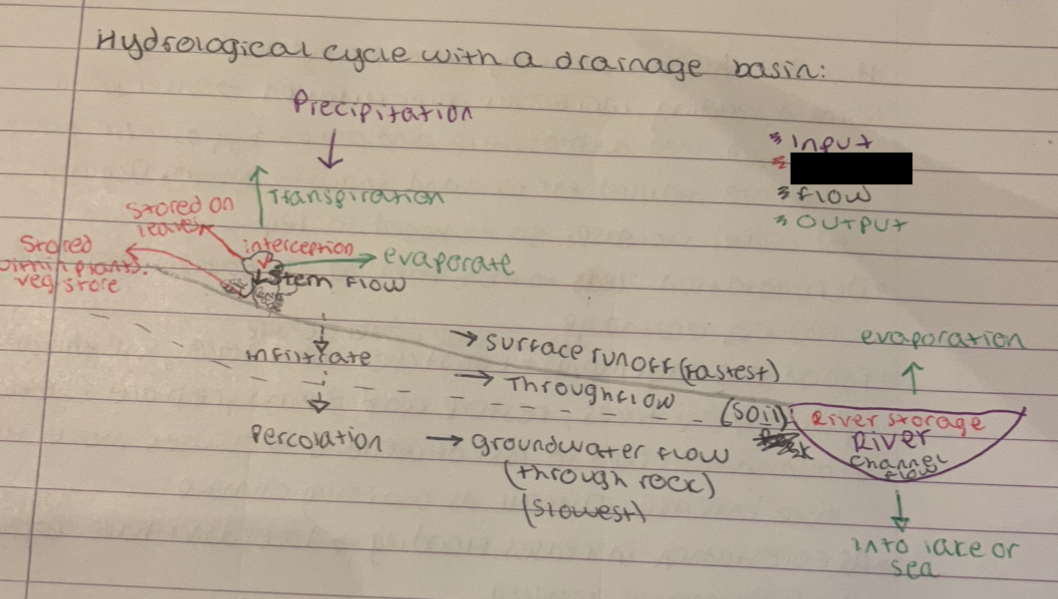 Hydrological cycle with a drainage basin:
Precipitation
* Input
*
* Flow
* Output
Transpiration
Stored on
leaves
interception
evaporate
Stored
plants.
veg store
Stem flow
infiltrate
→ surface runoff (fastest)
→ Throughflow
(soil)
evaporation
River storage
River
channel
flow
Percolation
→ groundwater flow
(through rock)
(slowest)
into lake or
sea